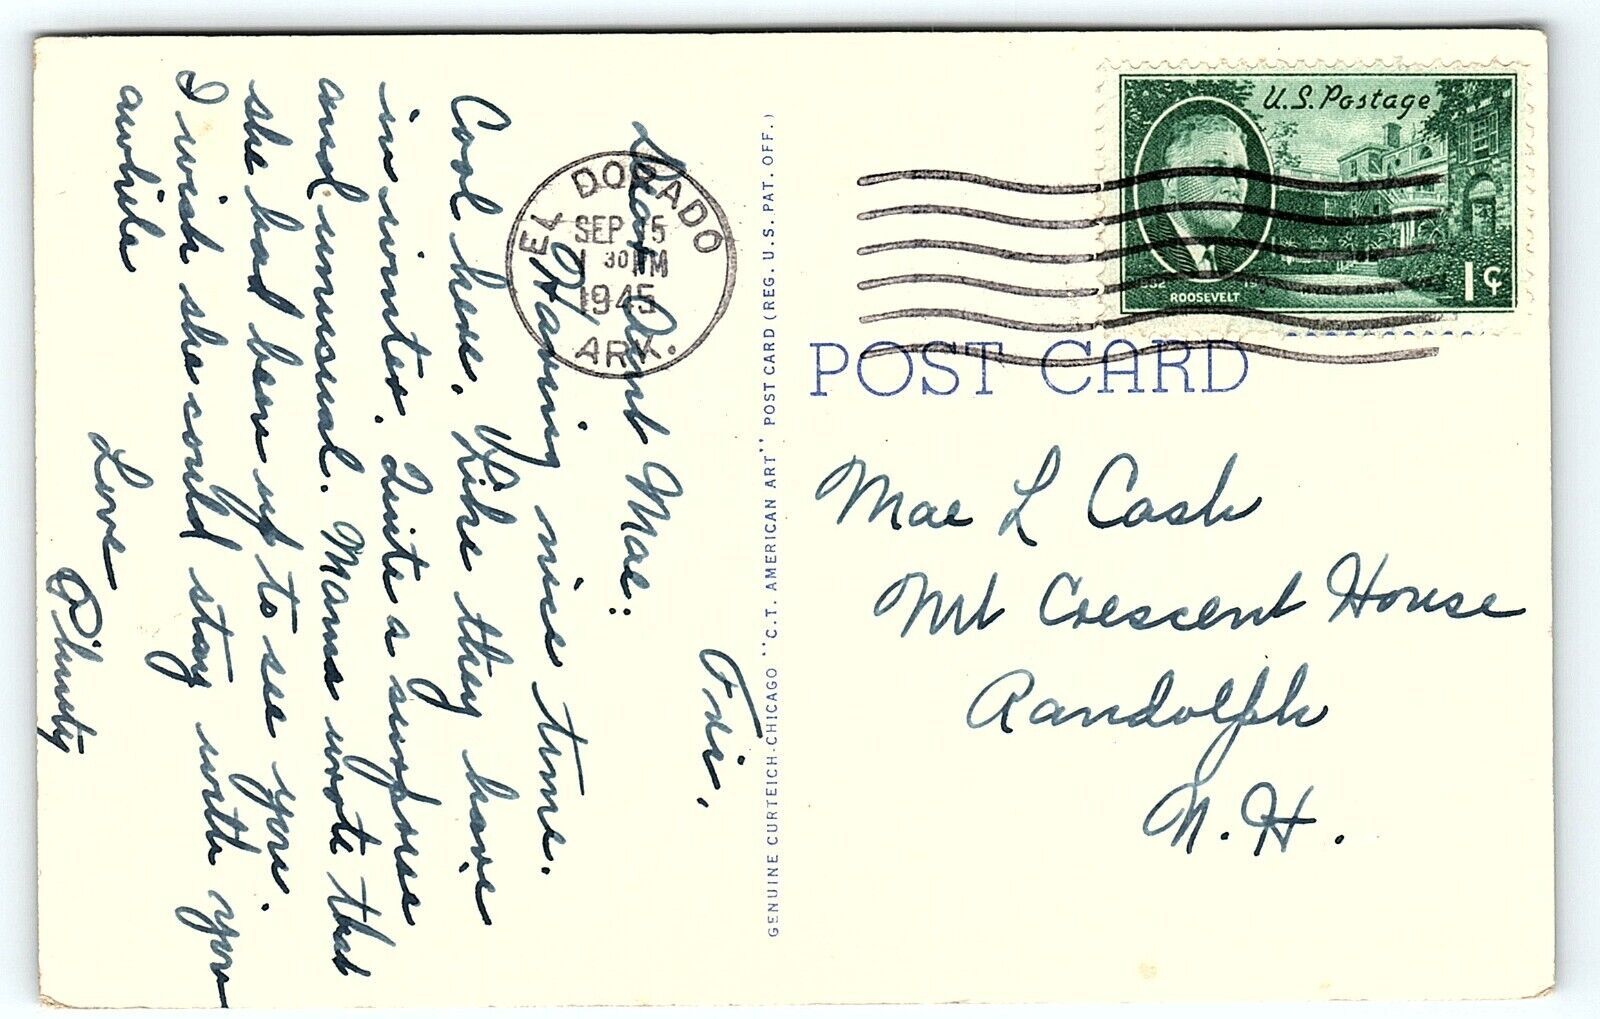 Fri.
Dear Aunt Mae:
Having nice time.
Cool here. Like they have
in winter. Quite a surprise
and unusual. Mama wrote that
she had been up to see you.
I wish she could stay with you
awhile
Love
EL DORADO
SEP 5
1 30 PM
1945
ARK.
GENUINE CURTEICH-CHICAGO "C.T. AMERICAN ART" POST CARD (REG. U.S. PAT. OFF.)
U.S. Postage
ROOSEVELT
HYDE PARK
1¢
POST CARD
Mae L Cash
Mt Crescent House
Randolph
N.H.